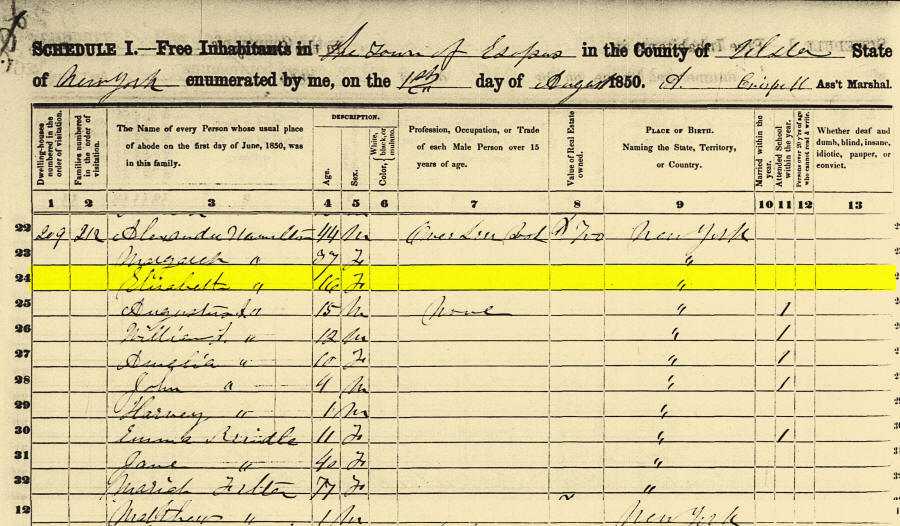 SCHEDULE I.—Free Inhabitants in The Town of Esopus in the County of Ulster State
of New York enumerated by me, on the 1st day of August 1850. A. Crispell Ass't Marshal.
Dwelling-houses numbered in the order of visitation.
Families numbered in the order of visitation.
The Name of every Person whose usual place of abode on the first day of June, 1850, was in this family.
DESCRIPTION.
Age.
Sex.
Color, { White, black, or mulatto.
Profession, Occupation, or Trade of each Male Person over 15 years of age.
Value of Real Estate owned.
PLACE OF BIRTH.
Naming the State, Territory, or Country.
Married within the year.
Attended School within the year.
Persons over 20 y'rs of age who cannot read & write.
Whether deaf and dumb, blind, insane, idiotic, pauper, or convict.
1 2 3 4 5 6 7 8 9 10 11 12 13
22 209 212 Alexander Hamilton 44 M New York
23 Margaret " 37 F "
24 Elisabeth " 16 F "
25 Augustus " 15 M None " 1
26 William " 12 M " 1
27 Amelia " 10 F " 1
28 John " M " 1
29 Harvey " 1 M "
30 Emma 11 F " 1
31 Jane " 40 F "
32 Mariah Felter 77 F "
12 Matthew " 1 M New York